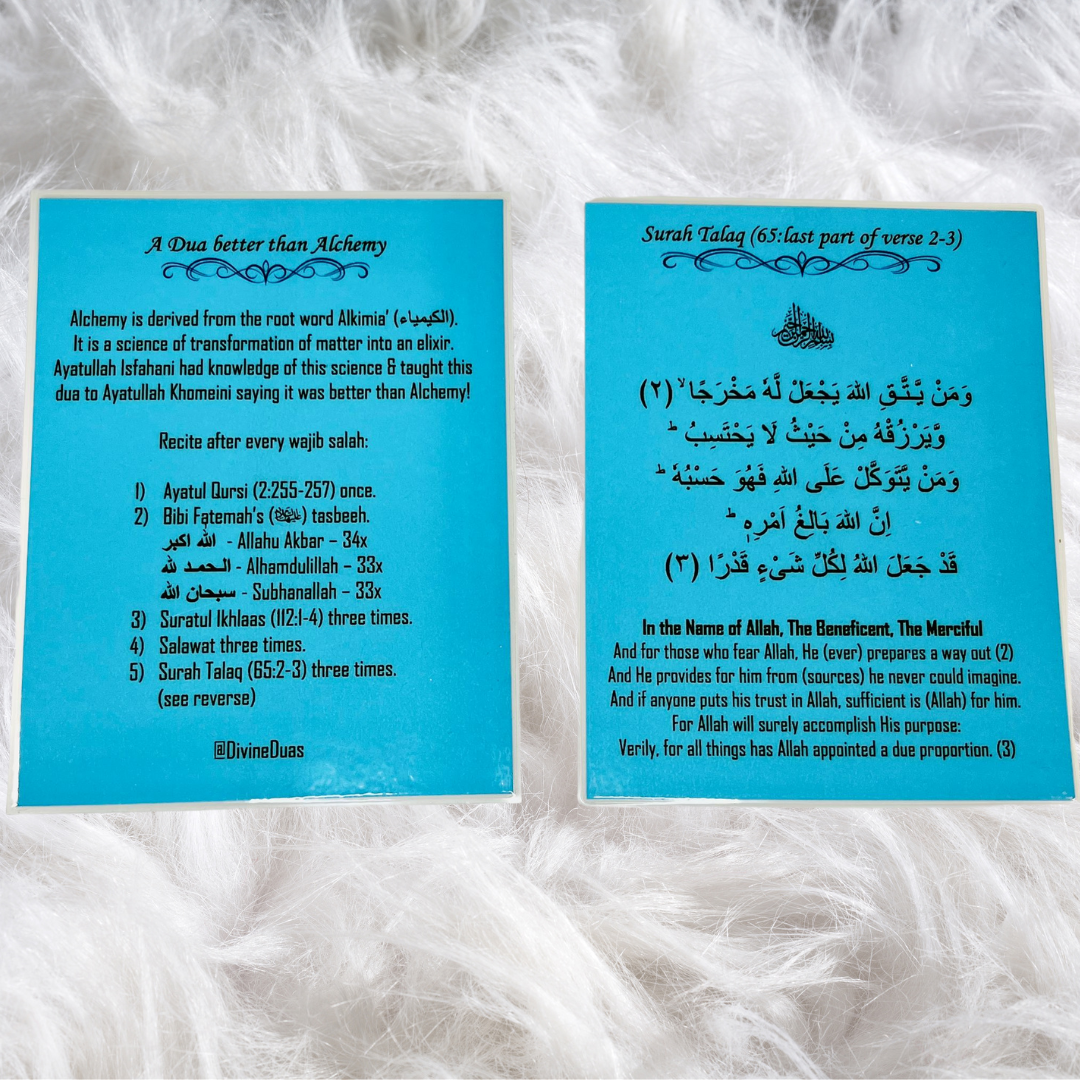 A Dua better than Alchemy
Alchemy is derived from the root word Alkimia' (الكيمياء).
It is a science of transformation of matter into an elixir.
Ayatullah Isfahani had knowledge of this science & taught this
dua to Ayatullah Khomeini saying it was better than Alchemy!
Recite after every wajib salah:
1) Ayatul Qursi (2:255-257) once.
2) Bibi Fatemah's () tasbeeh.
الله اكبر - Allahu Akbar – 34x
الحمد لله - Alhamdulillah – 33x
سبحان الله - Subhanallah – 33x
3) Suratul Ikhlaas (112:1-4) three times.
4) Salawat three times.
5) Surah Talaq (65:2-3) three times.
(see reverse)
@DivineDuas
Surah Talaq (65:last part of verse 2-3)
بسم الله الرحمن الرحيم
وَمَنْ يَّتَّقِ اللهَ يَجْعَلْ لَّهٗ مَخْرَجًا ۙ (٢)
وَّيَرْزُقْهُ مِنْ حَيْثُ لَا يَحْتَسِبُ ؕ
وَمَنْ يَّتَوَكَّلْ عَلَى اللهِ فَهُوَ حَسْبُهٗ ؕ
اِنَّ اللهَ بَالِغُ اَمْرِهٖ ؕ
قَدْ جَعَلَ اللهُ لِكُلِّ شَىْءٍ قَدْرًا (٣)
In the Name of Allah, The Beneficent, The Merciful
And for those who fear Allah, He (ever) prepares a way out (2)
And He provides for him from (sources) he never could imagine.
And if anyone puts his trust in Allah, sufficient is (Allah) for him.
For Allah will surely accomplish His purpose:
Verily, for all things has Allah appointed a due proportion. (3)